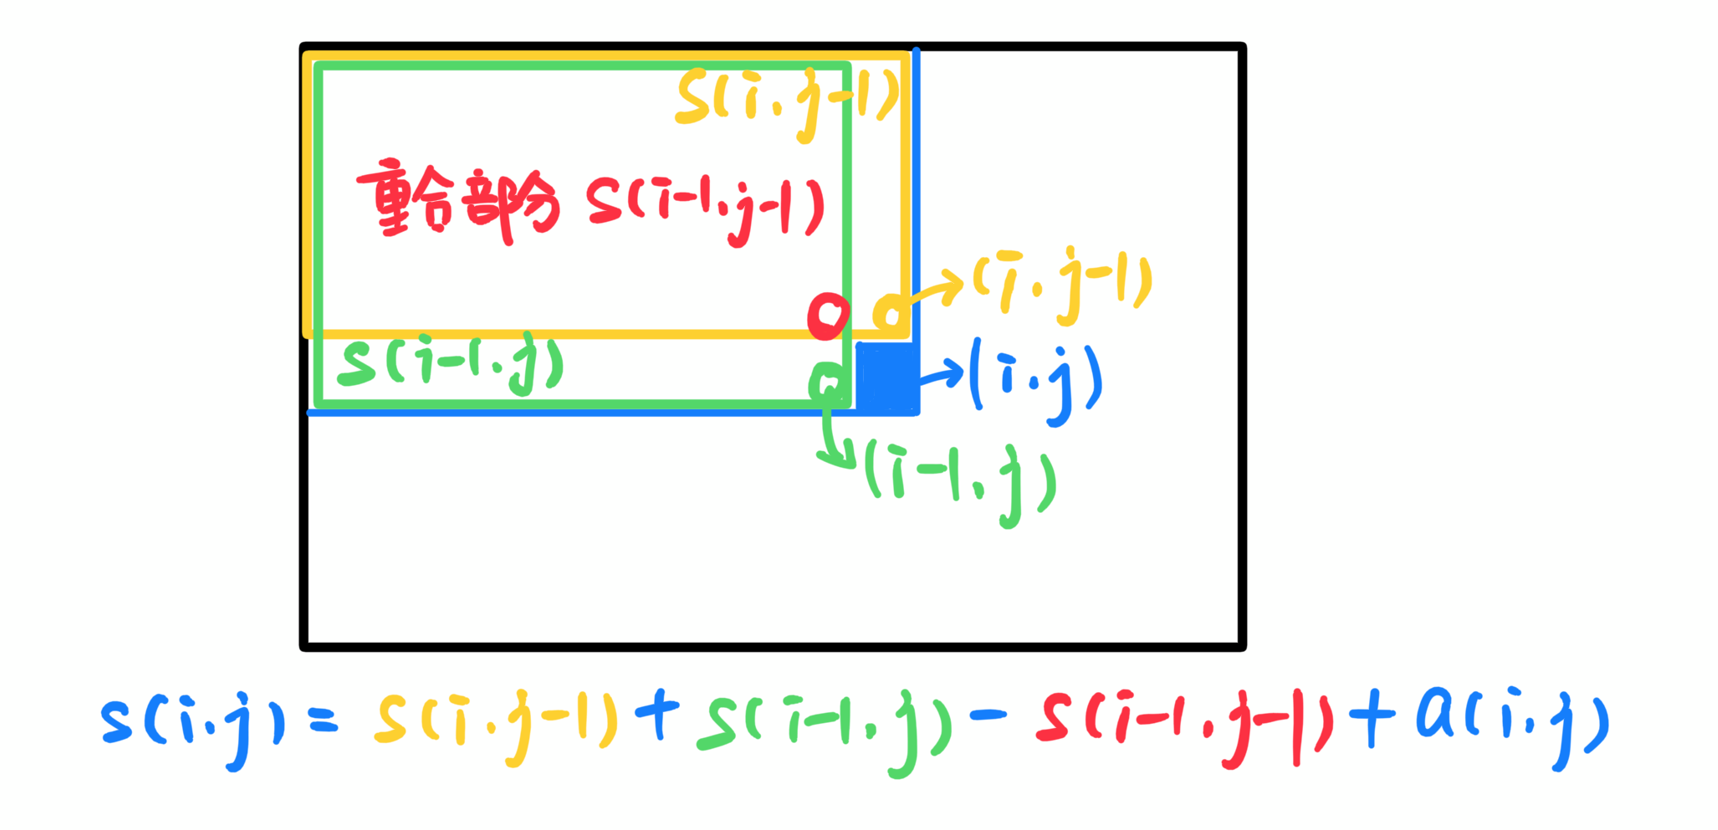 S(i.j-1)
重合部分 S(i-1.j-1)
(i.j-1)
S(i-1.j)
(i.j)
(i-1.j)
s(i.j) = S(i.j-1) + S(i-1.j) - S(i-1.j-1) + a(i.j)